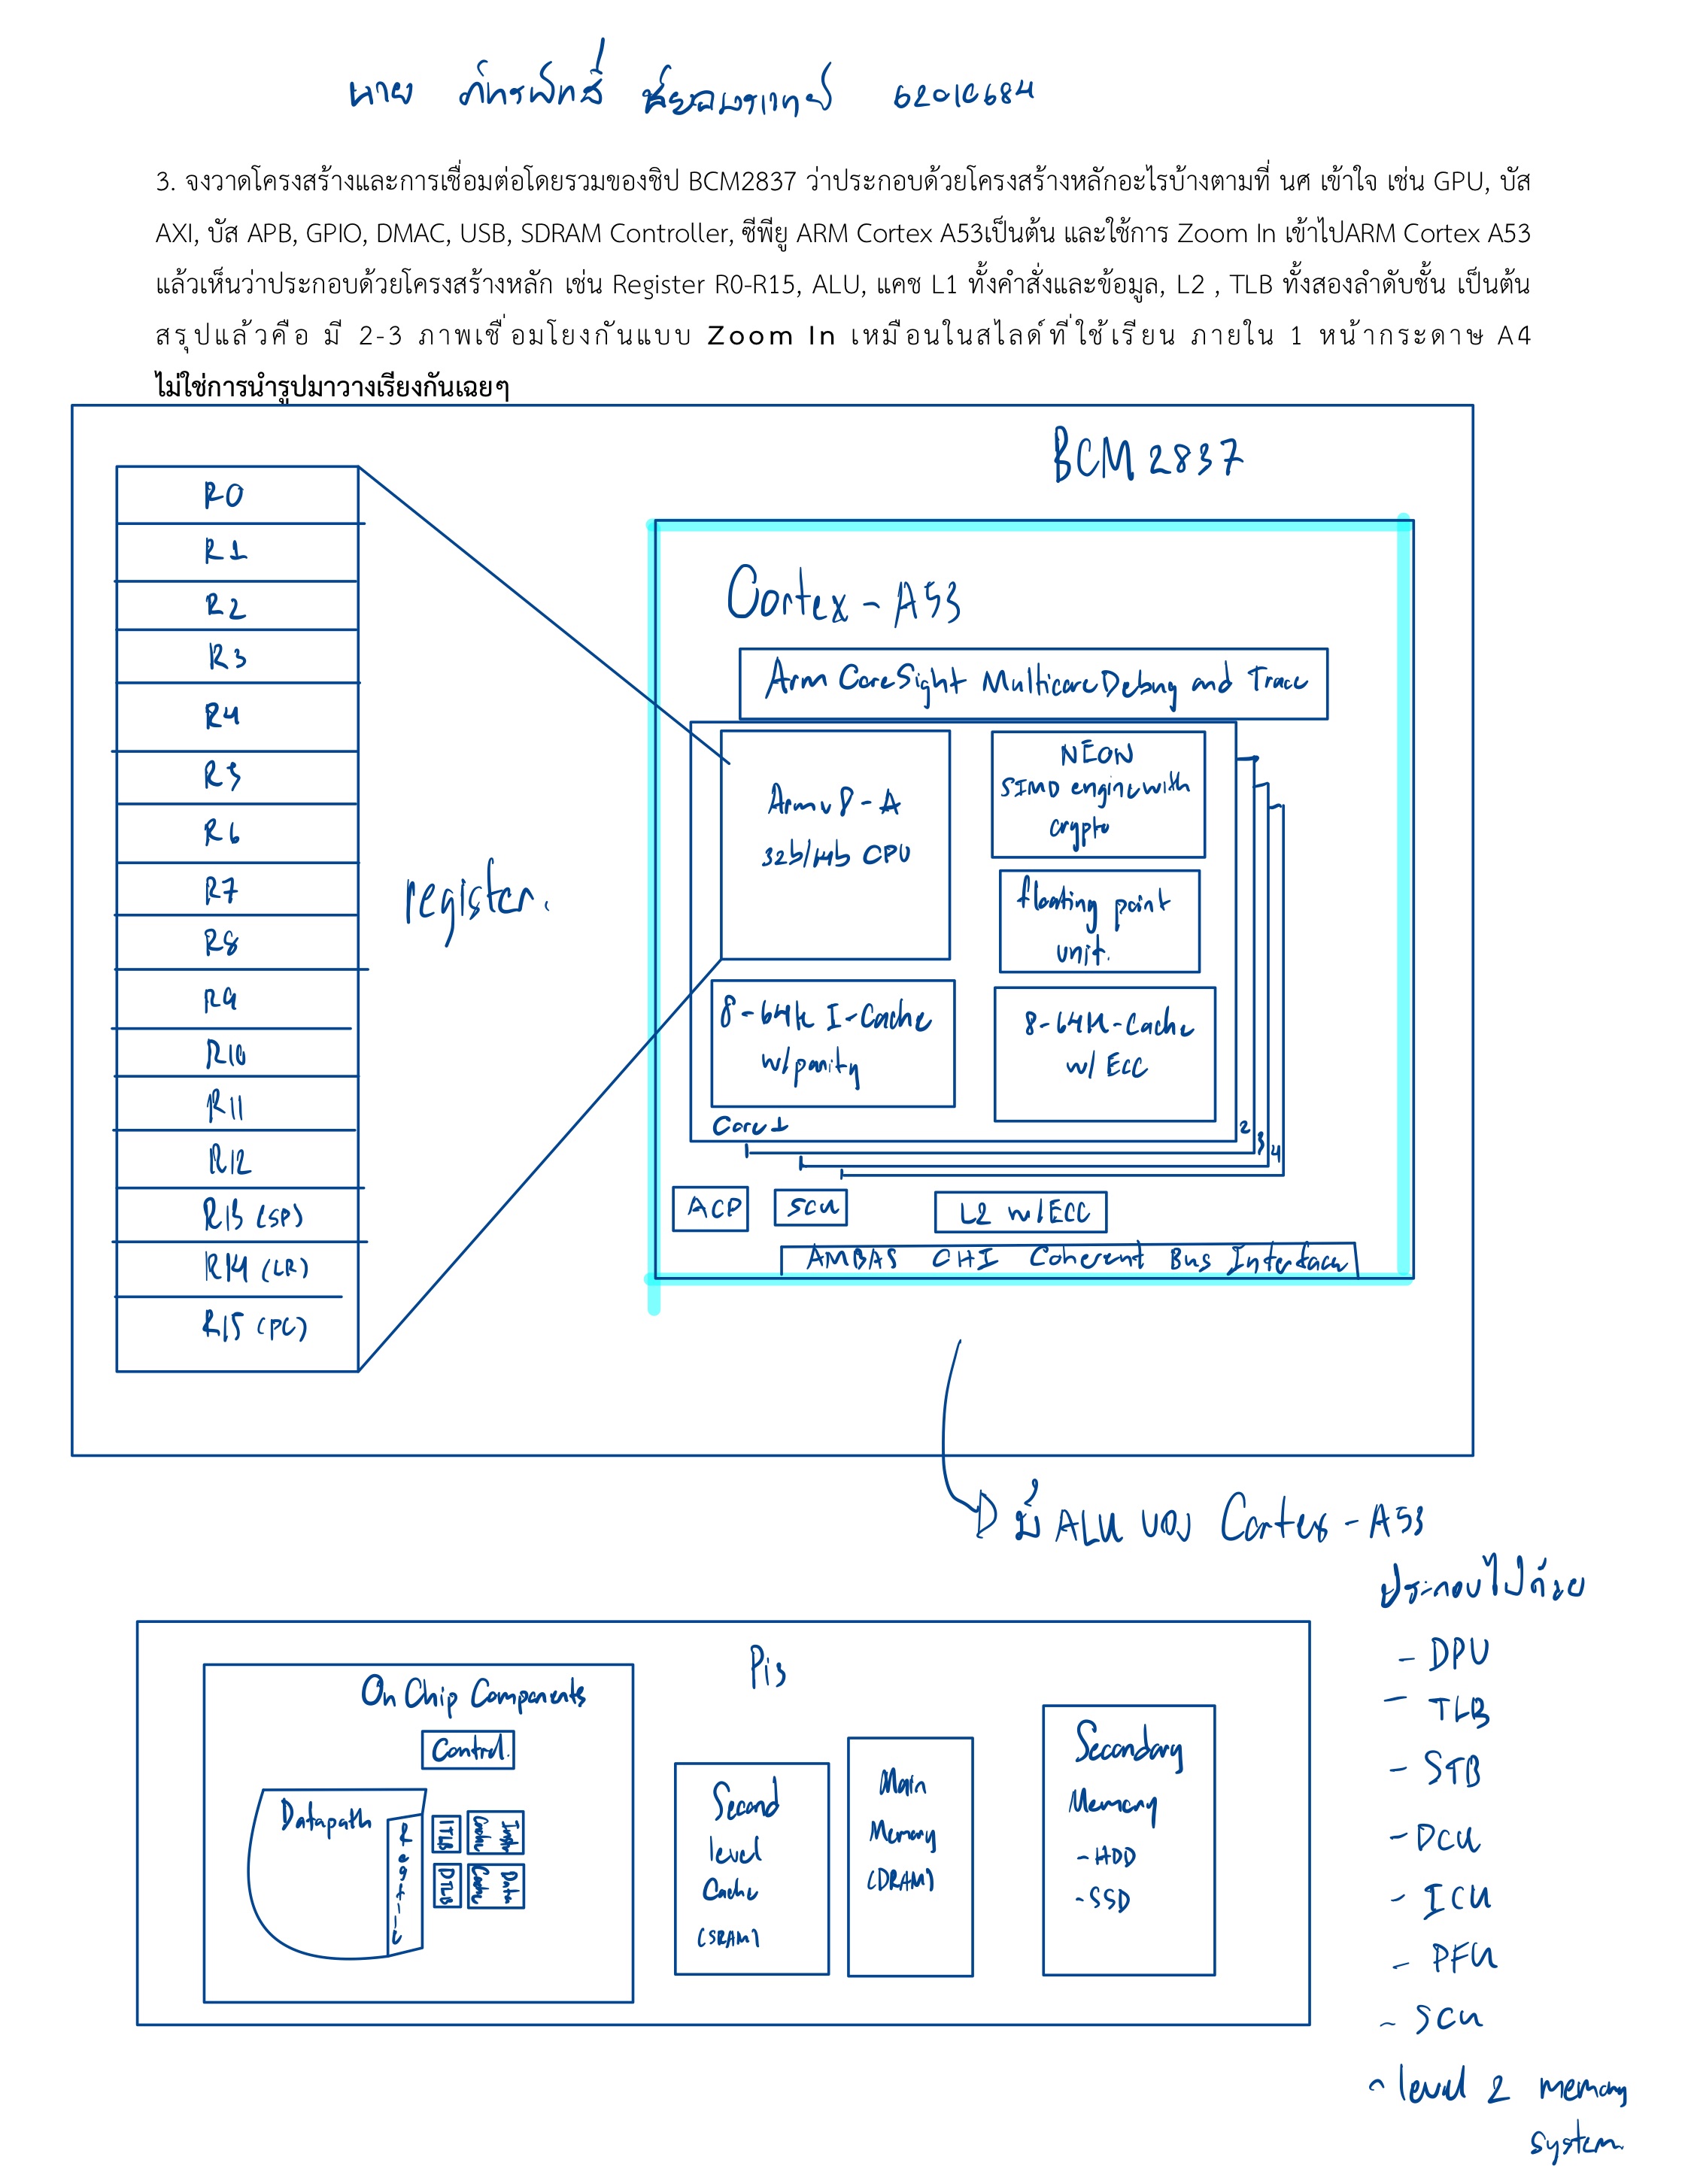 นาย ภัทรพิทธิ์ 62010684
3. จงวาดโครงสร้างและการเชื่อมต่อโดยรวมของชิป BCM2837 ว่าประกอบด้วยโครงสร้างหลักอะไรบ้างตามที่ นศ เข้าใจ เช่น GPU, บัส
AXI, บัส APB, GPIO, DMAC, USB, SDRAM Controller, ซีพียู ARM Cortex A53เป็นต้น และใช้การ Zoom In เข้าไปARM Cortex A53
แล้วเห็นว่าประกอบด้วยโครงสร้างหลัก เช่น Register R0-R15, ALU, แคช L1 ทั้งคำสั่งและข้อมูล, L2 , TLB ทั้งสองลำดับชั้น เป็นต้น
สรุปแล้วคือ มี 2-3 ภาพเชื่อมโยงกันแบบ Zoom In เหมือนในสไลด์ที่ใช้เรียน ภายใน 1 หน้ากระดาษ A4
ไม่ใช่การนำรูปมาวางเรียงกันเฉยๆ
BCM2837
R0
R1
R2
R3
R4
R5
R6
R7
R8
R9
R10
R11
R12
R13 (SP)
R14 (LR)
R15 (PC)
register.
Cortex-A53
Arm CoreSight Multicore Debug and Trace
Armv8-A
32b/64b CPU
NEON
SIMD engine with
crypto
floating point
unit.
8-64k I-Cache
w/parity
8-64K-Cache
w/ ECC
Core 1
2
3
4
ACP
SCU
L2 w/ECC
AMBA5 CHI Coherent Bus Interface
มี ALU ของ Cortex-A53
ประกอบไปด้วย
- DPU
- TLB
- STB
- DCU
- ICU
- PFU
- SCU
- level 2 memory
system
Pi3
On Chip Components
Control.
Datapath
ITLB
Instr
Cache
DTLB
Data
Cache
Second
level
Cache
(SRAM)
Main
Memory
(DRAM)
Secondary
Memory
- HDD
- SSD